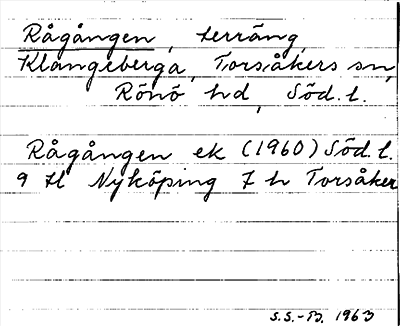 Rågången, terräng,
Klangeberga, Torsåkers sn,
Rönö hd, Söd. l.
Rågången ek (1960) Söd. l.
9 H Nyköping 7 h Torsåker
S.S.-B. 1963